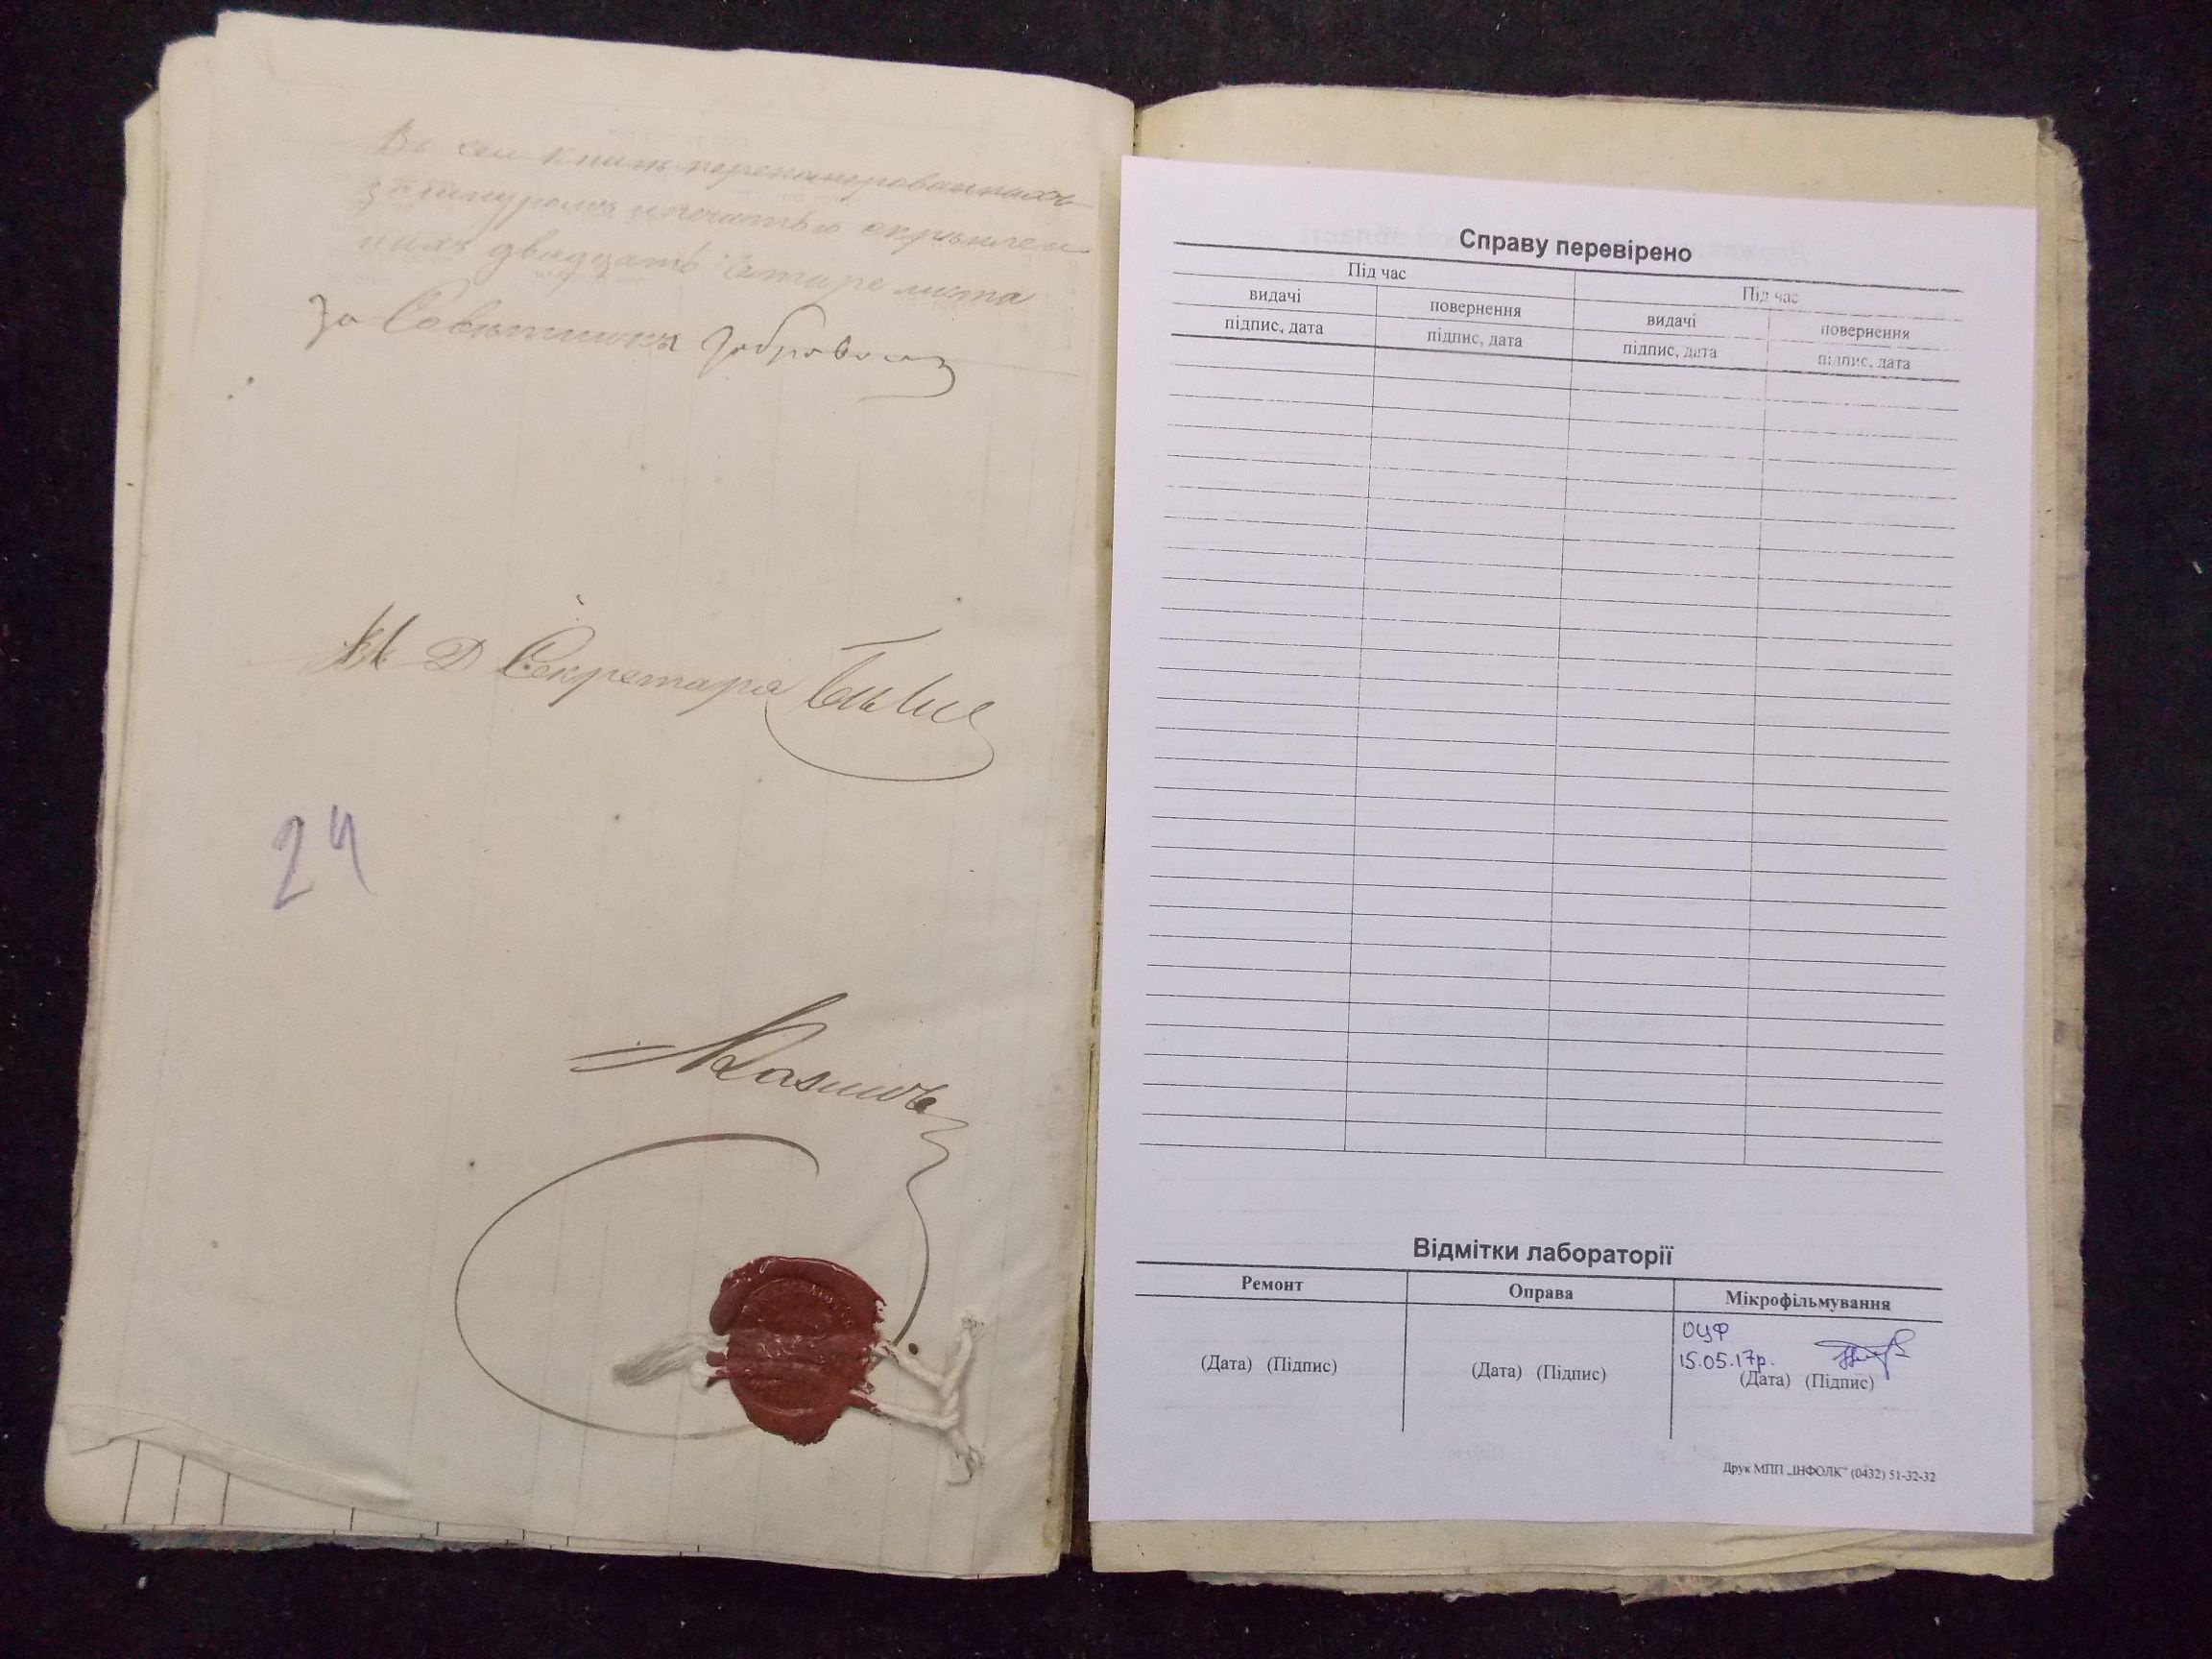 Въ сей книгѣ перенумерованныхъ
зашнуромъ и печатью скрѣплен
ныхъ двадцать четыре листа
За Совѣтника
И Д Секретаря
24
Справу перевірено
Під час Під час
видачі повернення видачі повернення
підпис, дата підпис, дата підпис, дата підпис, дата
Відмітки лабораторії
Ремонт Оправа Мікрофільмування
ОЦФ
15.05.17р.
(Дата) (Підпис) (Дата) (Підпис) (Дата) (Підпис)
Друк МПП „ІНФОЛК" (0432) 51-32-32